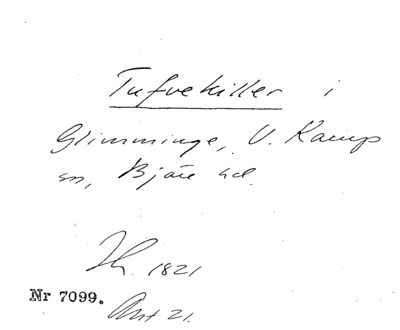 Tufvekiller i
Glimminge, V. Karup
sn, Bjäre hd.
Th. 1821
Nr 7099.
Ant 21.